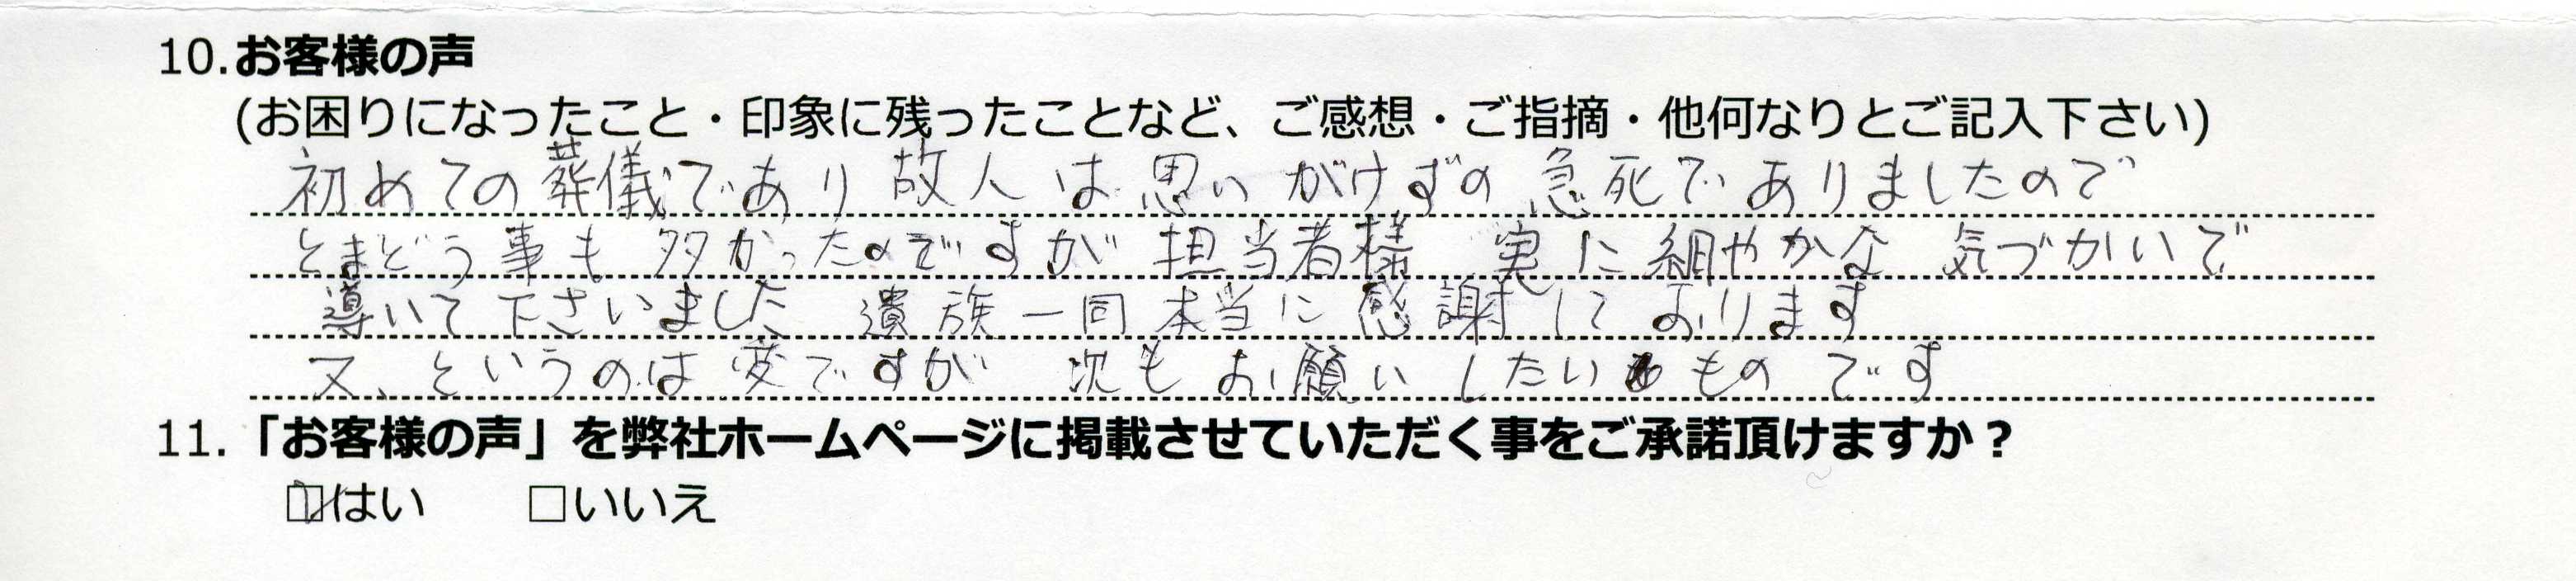 10.お客様の声
(お困りになったこと・印象に残ったことなど、ご感想・ご指摘・他何なりとご記入下さい)
初めての葬儀であり故人は思いがけずの急死でありましたので
とまどう事も多かったのですが担当者様 実に細やかな気づかいで
導いて下さいました 遺族一同本当に感謝しております
又、というのは変ですが 次もお願いしたいものです
11.「お客様の声」を弊社ホームページに掲載させていただく事をご承諾頂けますか？
☑はい □いいえ